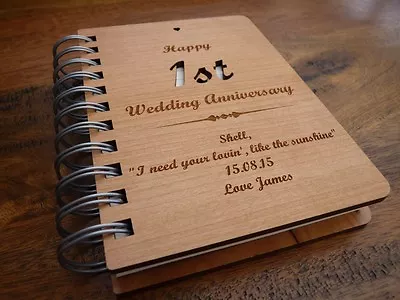 Happy
1st
Wedding Anniversary
Shell,
"I need your lovin', like the sunshine"
15.08.15
Love James